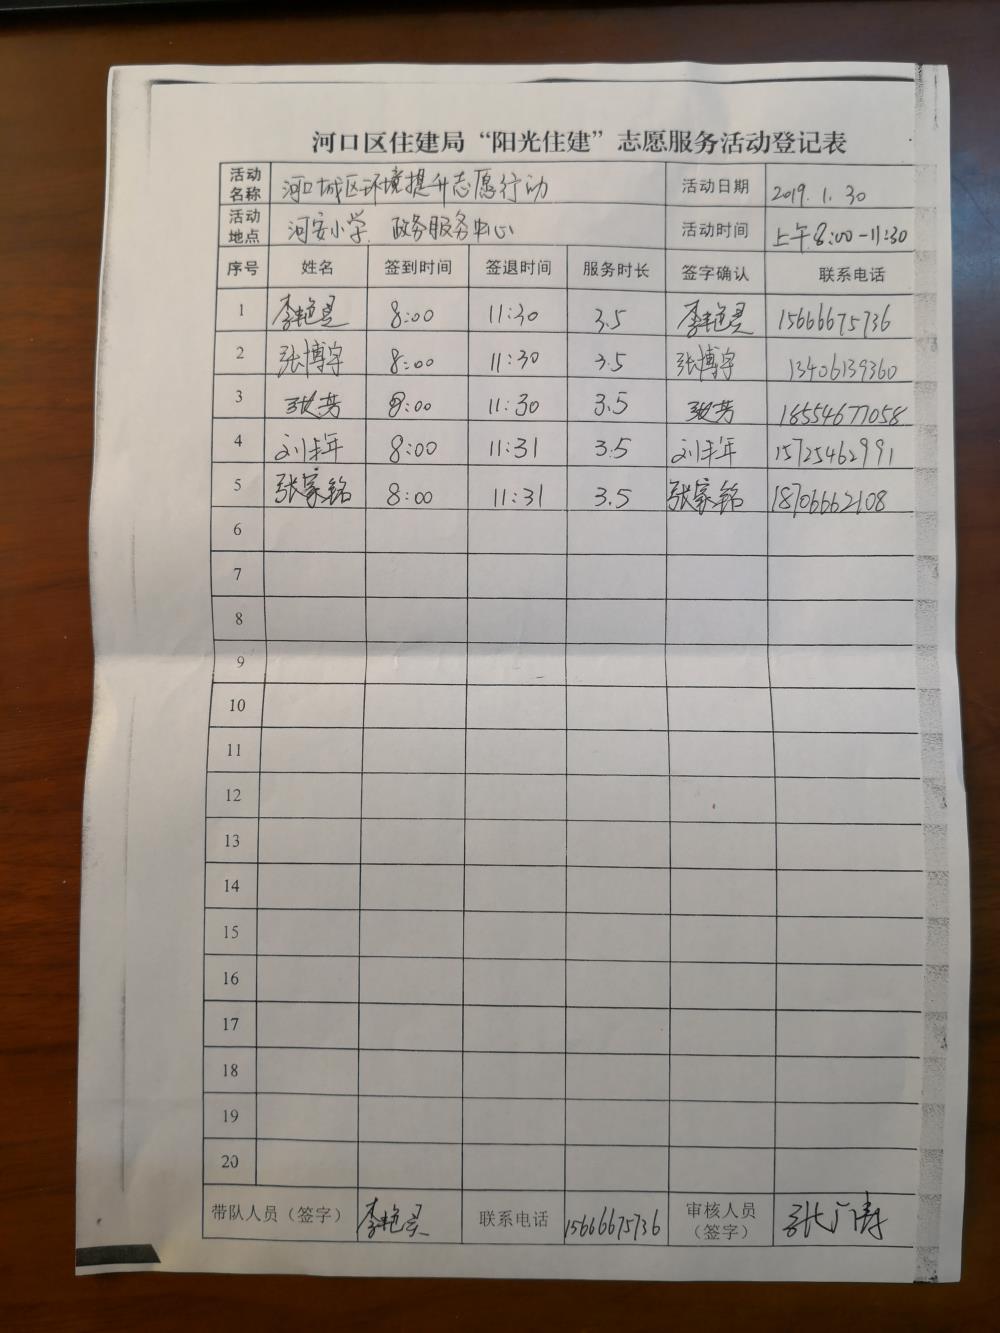 河口区住建局“阳光住建”志愿服务活动登记表
活动名称 河口城区环境提升志愿行动 活动日期 2019.1.30
活动地点 河安小学、政务服务中心 活动时间 上午8:00-11:30
序号 姓名 签到时间 签退时间 服务时长 签字确认 联系电话
1 李艳灵 8:00 11:30 3.5 李艳灵 15666675736
2 张博宇 8:00 11:30 3.5 张博宇 13406139360
3 张芳 8:00 11:30 3.5 张芳 18554677058
4 刘丰年 8:00 11:31 3.5 刘丰年 15725462991
5 张家铭 8:00 11:31 3.5 张家铭 18706662108
6
7
8
9
10
11
12
13
14
15
16
17
18
19
20
带队人员（签字） 李艳灵 联系电话 15666675736 审核人员（签字） 张广涛